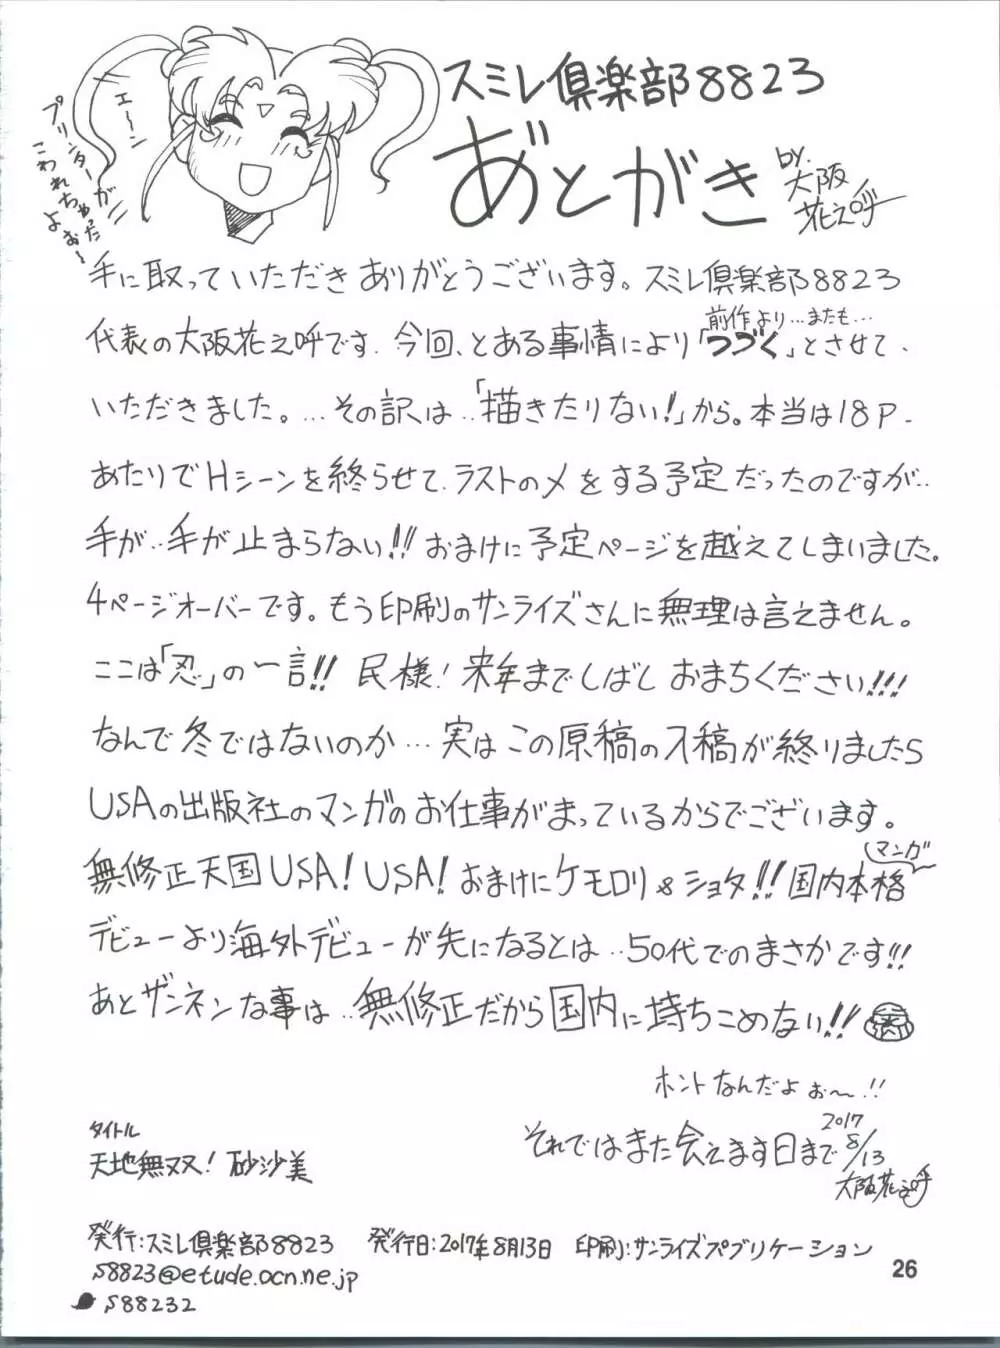 スミレ倶楽部8823
あとがき
by.
大阪
花之呼
エ～ン
プリンターが
こわれちゃった
よぉ～
手に取っていただきありがとうございます。スミレ倶楽部8823
代表の大阪花之呼です。今回、とある事情により「つづく」とさせて、
前作より…またも…
いただきました。…その訳は‥「描きたりない!」から。本当は18P.
あたりでHシーンを終らせて、ラストの〆をする予定だったのですが‥
手が‥手が止まらない!!おまけに予定ページを越えてしまいました。
4ページオーバーです。もう印刷のサンライズさんに無理は言えません。
ここは「忍」の一言!! 民様! 来年までしばしおまちください!!!
なんで冬ではないのか…実はこの原稿の入稿が終りましたら
USAの出版社のマンガのお仕事がまっているからでございます。
無修正天国USA! USA! おまけにケモロリ&ショタ!! 国内本格
マンガ
デビューより海外デビューが先になるとは‥50代でのまさかです!!
あとザンネンな事は‥無修正だから国内に持ちこめない!!
ホントなんだよぉ～!!
それではまた会えます日まで
2017
8/13
大阪花之呼
タイトル
天地無双! 砂沙美
発行:スミレ倶楽部8823 発行日:2017年8月13日 印刷:サンライズパブリケーション
S8823@etude.ocn.ne.jp
S88232
26